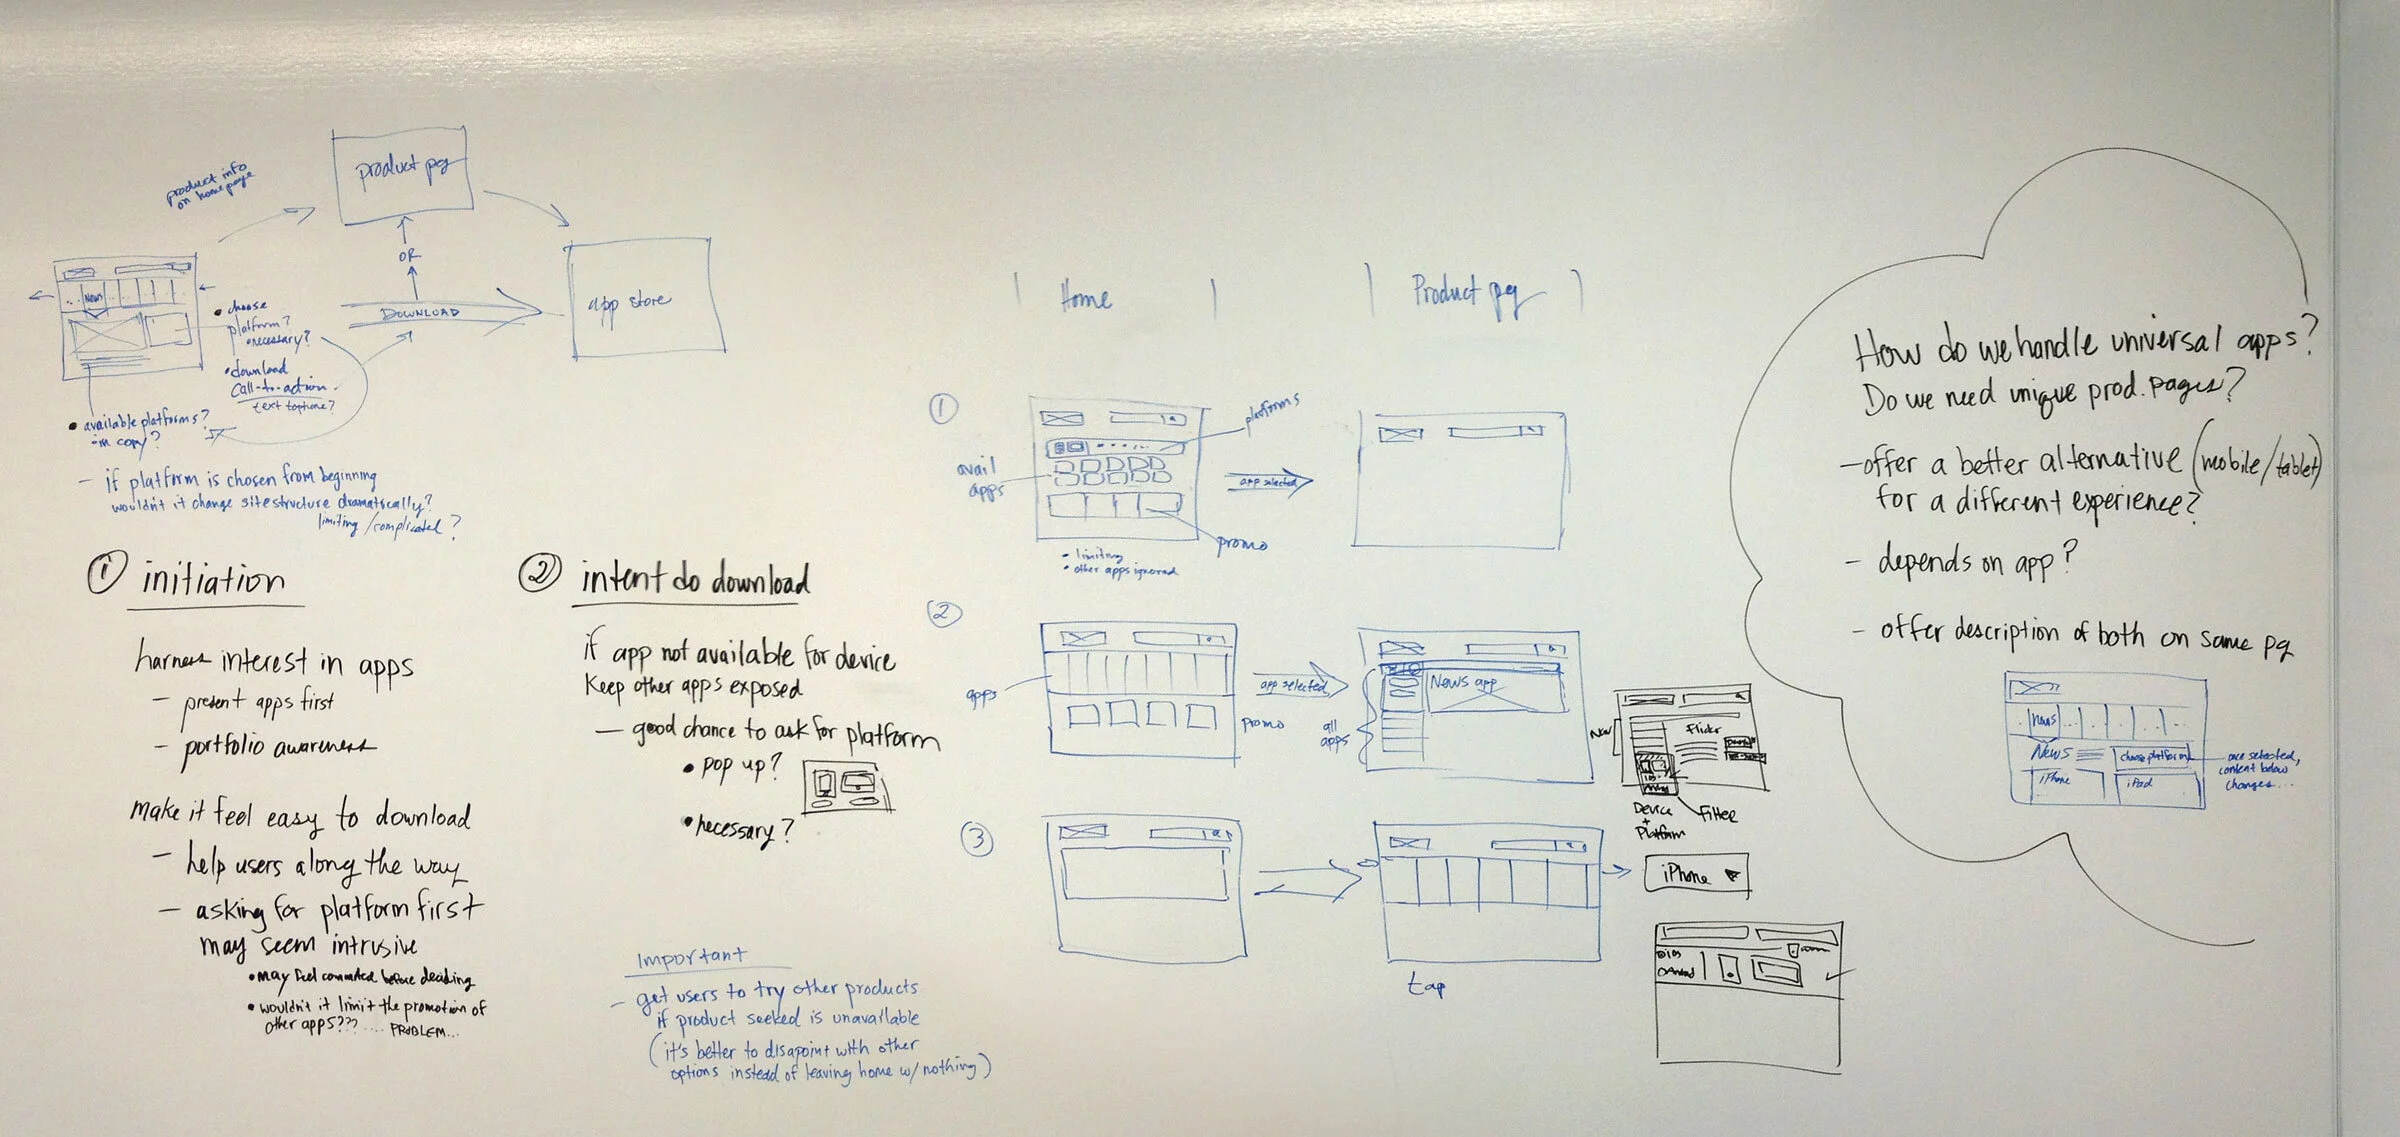 product info
on homepage
product pg
OR
DOWNLOAD
app store
News
• choose
platform?
• necessary?
• download
call-to-action
text to phone?
• available platforms?
• in copy?
- if platform is chosen from beginning
wouldn't it change site structure dramatically?
limiting / complicated?
① initiation
harness interest in apps
- present apps first
- portfolio awareness
make it feel easy to download
- help users along the way
- asking for platform first
may seem intrusive
• may feel committed before deciding
• wouldn't it limit the promotion of
other apps??? .... PROBLEM...
② intent do download
if app not available for device
Keep other apps exposed
- good chance to ask for platform
• pop up?
• necessary?
Important
- get users to try other products
if product seeked is unavailable
(it's better to disapoint with other
options instead of leaving home w/ nothing)
Home
Product pg
①
platforms
avail
apps
app selected
promo
• limiting
• other apps ignored
②
apps
app selected
promo
News app
all
apps
Nav
Flickr
Device
+
Platform
Filter
③
iPhone
tap
How do we handle universal apps?
Do we need unique prod. pages?
- offer a better alternative (mobile/tablet)
for a different experience?
- depends on app?
- offer description of both on same pg
news
News
choose platform
iPhone
iPad
once selected,
content below
changes...